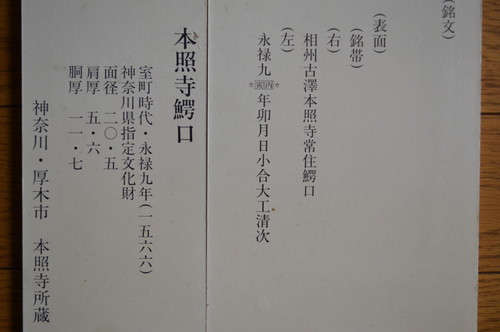 (銘文)
(表面)
(銘帯)
(右)
相州古澤本照寺常住鰐口
(左)
永禄九丙寅年卯月日小合大工清次
本照寺鰐口
室町時代・永禄九年(一五六六)
神奈川県指定文化財
面径 二〇・五
肩厚 五・六
胴厚 一一・七
神奈川・厚木市 本照寺所蔵